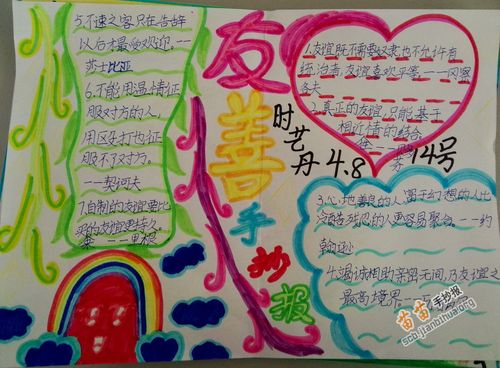 友善手抄报
时艺丹 4.8 14号
1.友谊既不需要奴隶也不允许有
统治者,友谊喜欢平等。——冈察
洛夫
2.真正的友谊,只能基于
相近情的结合
3.心地善良的人,富于幻想的人比
冷酷残忍的人更容易聚合。——约
翰逊
4.竭诚相助亲密无间,乃友谊之
最高境界。
5.不速之客只在告辞
以后才最受欢迎。——
莎士比亚
6.不能用温情征
服对方的人,
用区打也征
服不了对方。
——契诃夫
7.自制的友谊要比
买的友谊更持久。
——里根
苗苗手抄报
scb.jianbihua.org